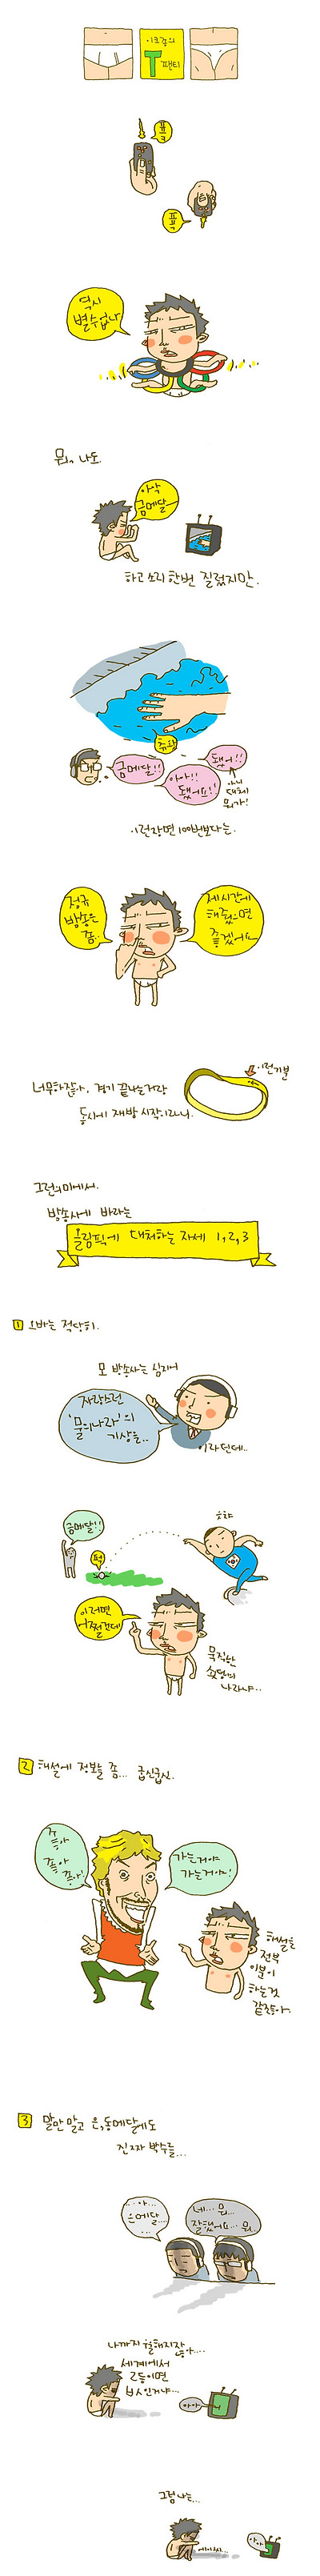 이크종의
T
팬티
역시
별수없나
뭐, 나도.
아싸
금메달
하고 소리 한번 질렀지만.
금메달!!
아아!!
됐어요!!
됐어!!
아니
대체
뭐가!
이런장면 100번보다는.
정규
방송은
좀.
제시간에
해줬으면
좋겠어요
너무하잖아, 경기 끝나는거랑
동시에 재방 시작이라니.
이런기분
그런의미에서.
방송사에 바라는
올림픽에 대처하는 자세 1, 2, 3
1 오바는 적당히.
모 방송사는 심지어
자랑스런
'물의나라'의
기상을..
이라던데..
금메달!!
퍽
으햐
이러면
어쩔건데
묵직한
솥뚜껑의
나라냐..
2 해설에 정보를 좀... 굽신굽신.
좋아
좋아
좋아!
가는거야
가는거야!
해설을
전부
이분이
하는것
같잖아.
3 말만 말고 은,동메달에도
진짜 박수를...
..아...
은메달...
...
네... 뭐...
잘했어요... 뭐..
나까지 침울해지잖아....
세계에서
2등이면
넘 人인거냐...
아아..
그럼 나는...
아아..